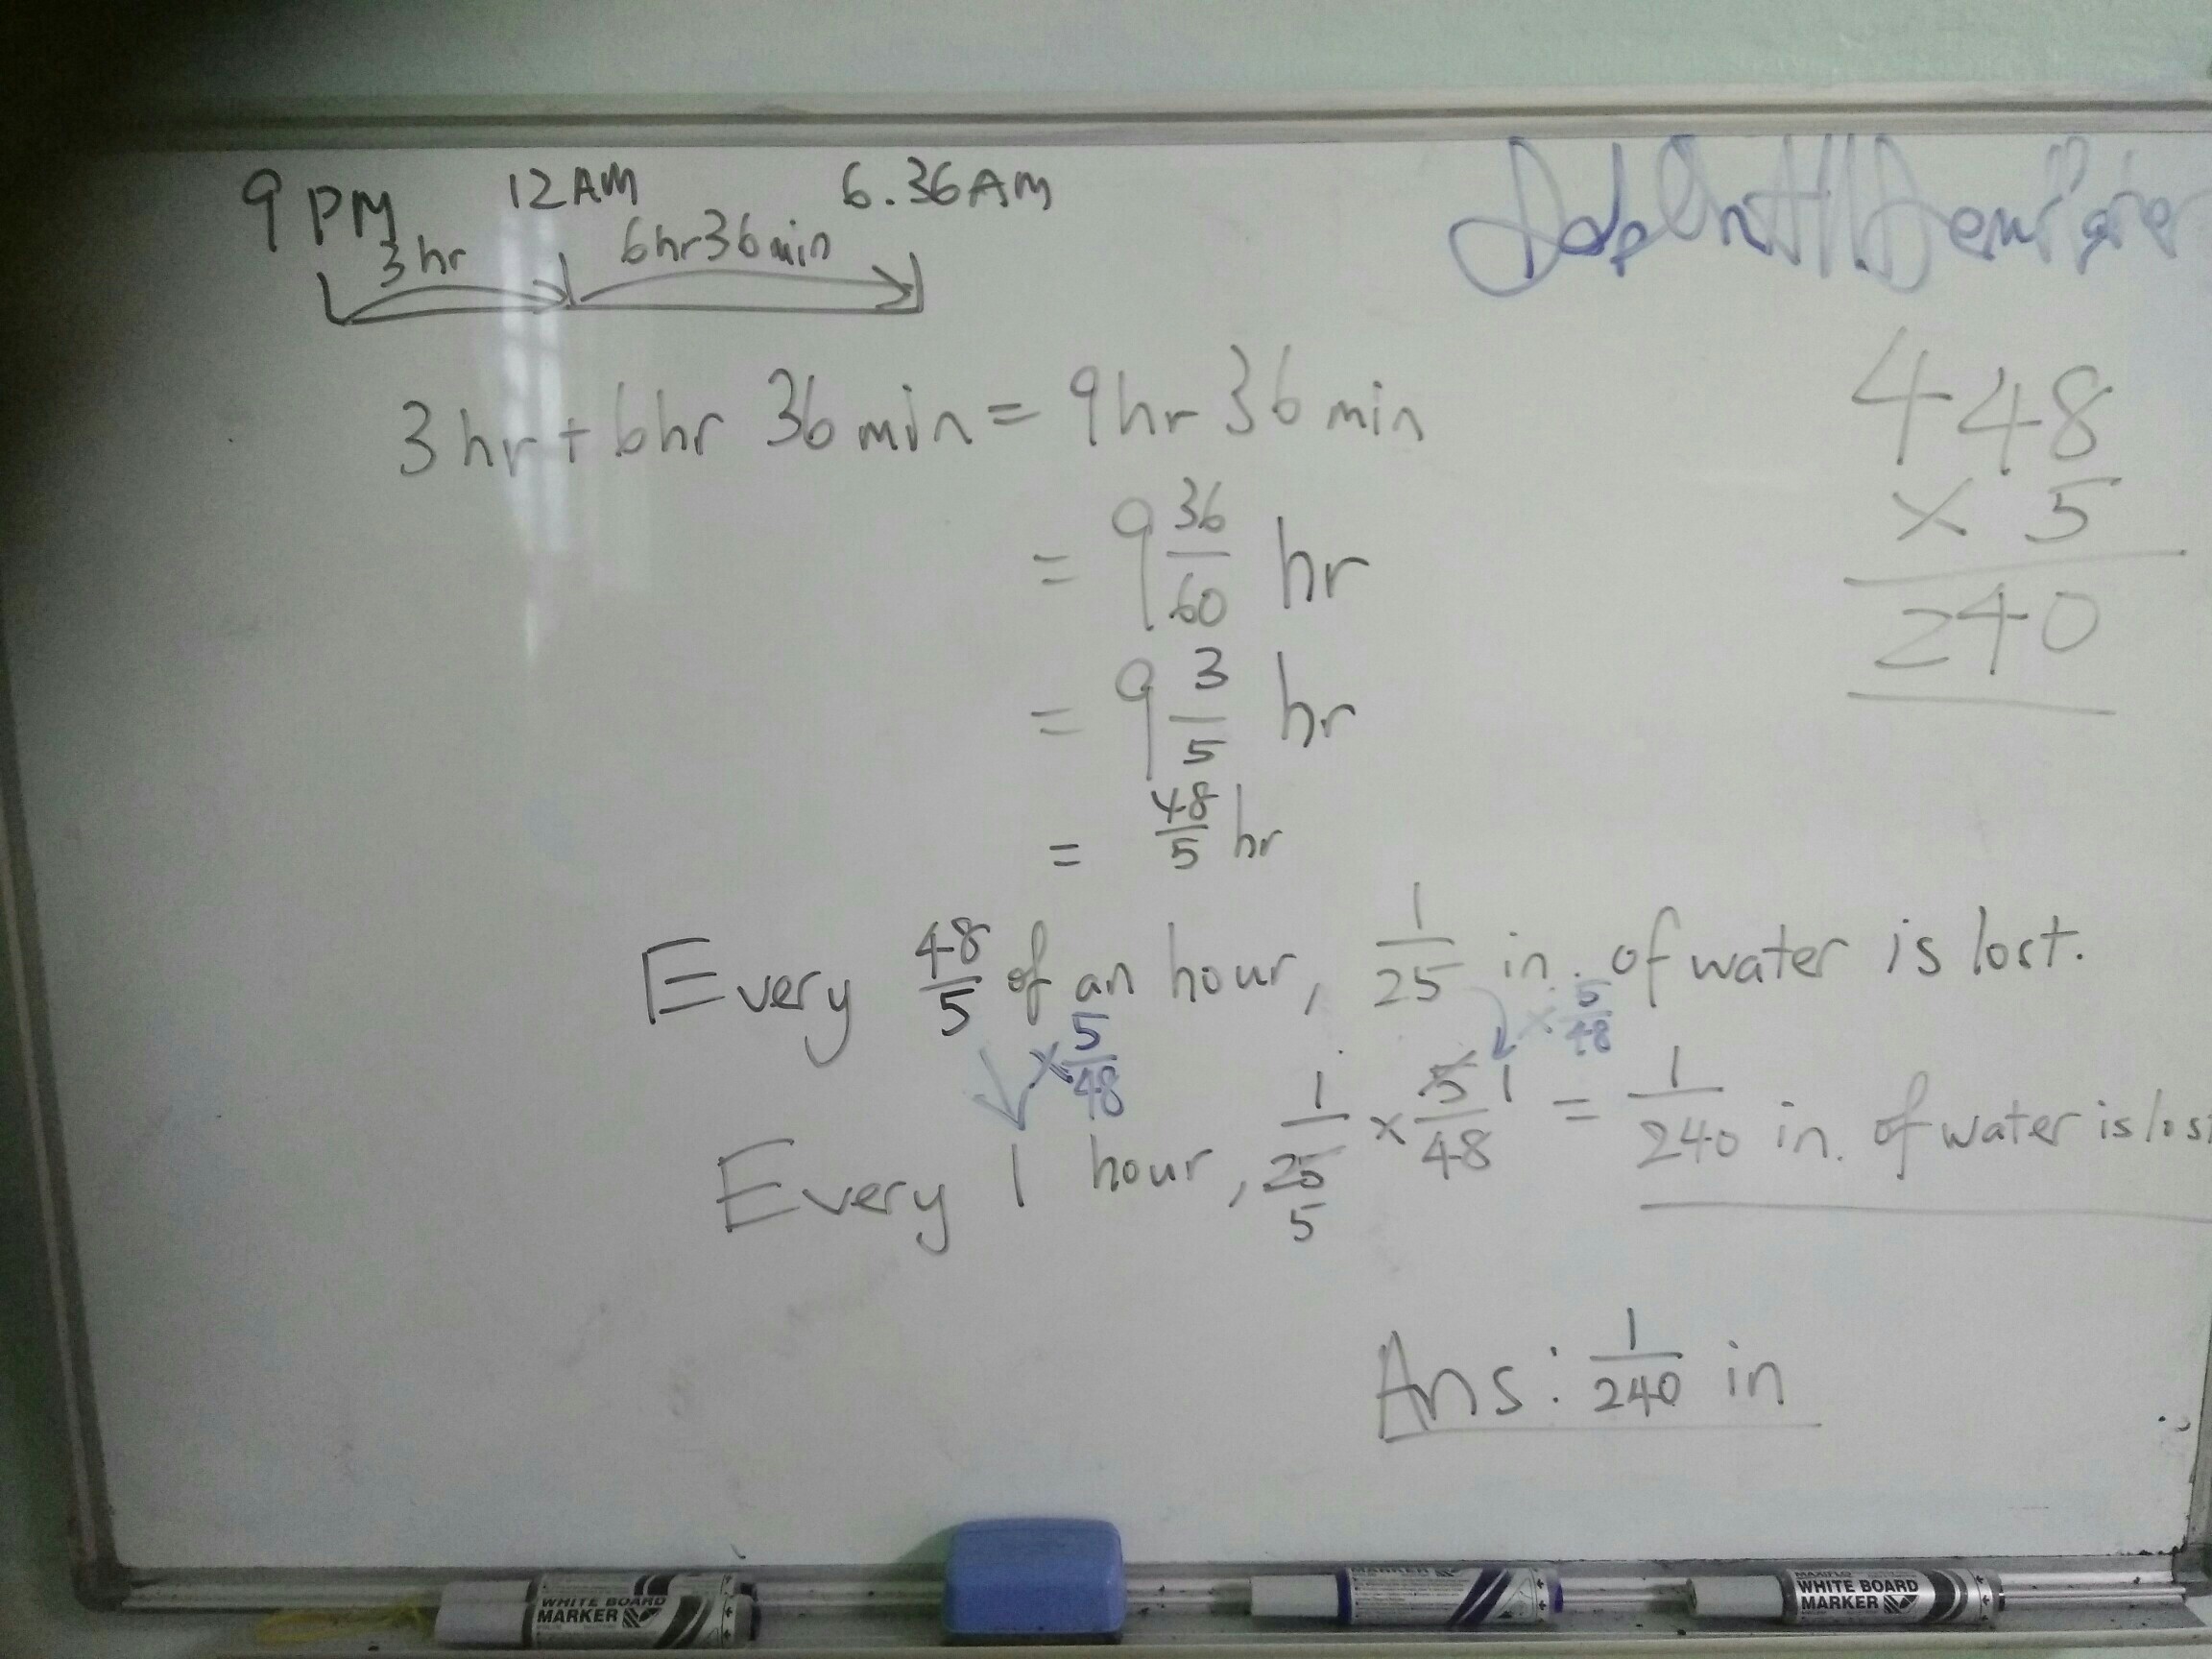 9 PM 12 AM 6.36 AM
3 hr 6hr 36 min
3 hr + 6hr 36 min = 9hr 36 min
= 9 36/60 hr
= 9 3/5 hr
= 48/5 hr
448
× 5
240
Every 48/5 of an hour, 1/25 in. of water is lost.
× 5/48 × 5/48
Every 1 hour, 1/25 5 × 5/48 1 = 1/240 in. of water is los
Ans: 1/240 in
WHITE BOARD
MARKER
MARKER
WHITE BOARD
MARKER